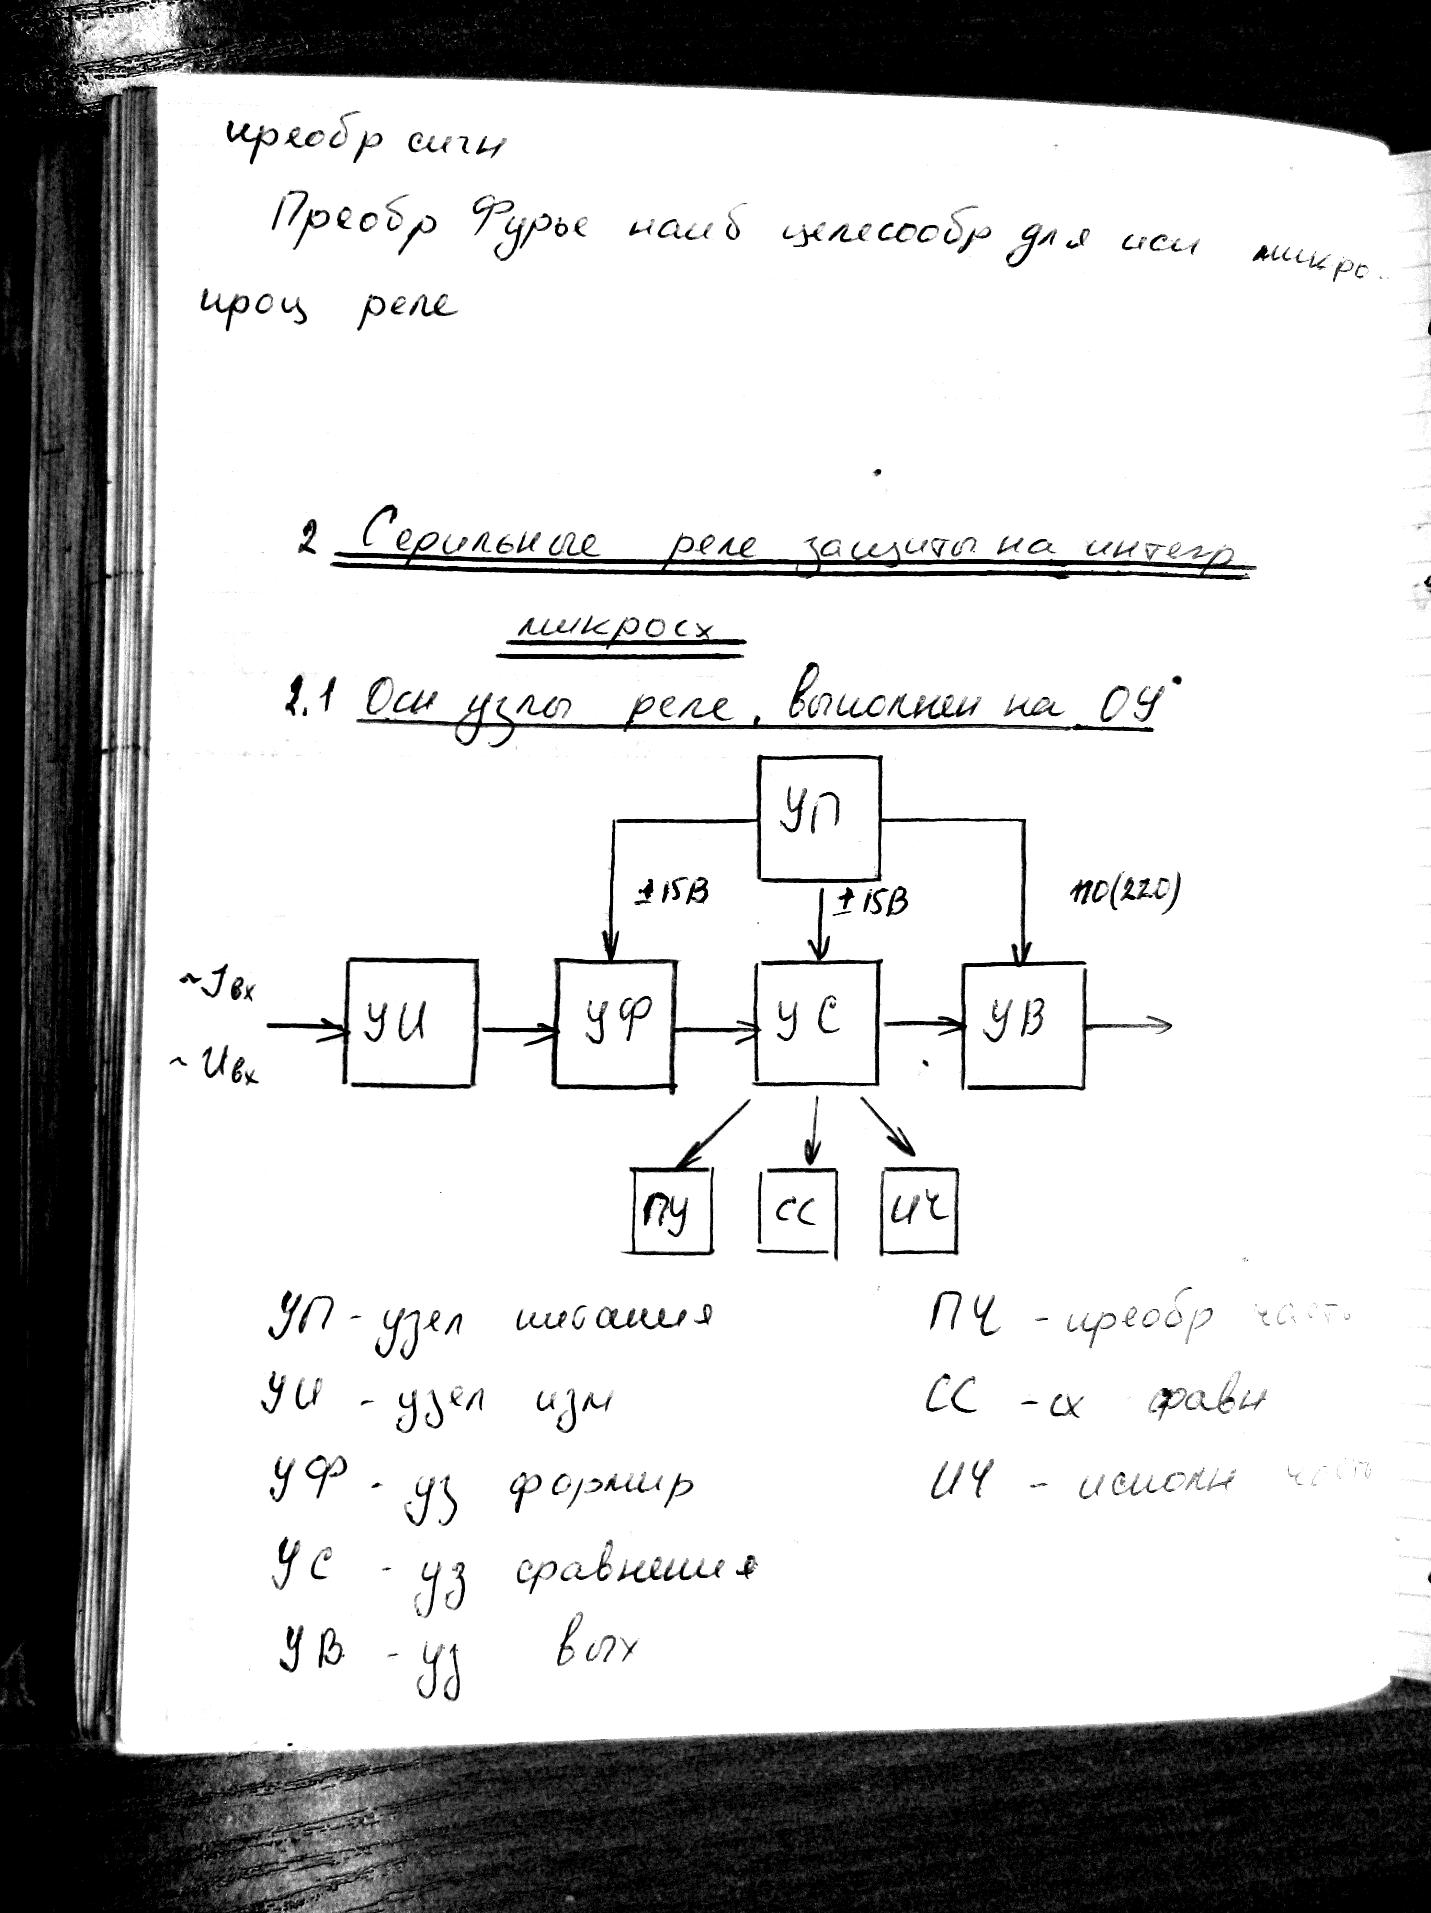 преобр сигн
Преобр Фурье наиб целесообр для исп микро-
проц реле
2 Серильные реле защиты на интегр
микросх
2.1 Осн узлы реле, выполнен на ОУ
УП
±15В ±15В 110(220)
~Iвх
УИ УФ УС УВ
~Uвх
ПУ СС ИЧ
УП - узел питания ПЧ - преобр часть
УИ - узел изм СС - сх сравн
УФ - уз формир ИЧ - исполн часть
УС - уз сравнения
УВ - уз вых